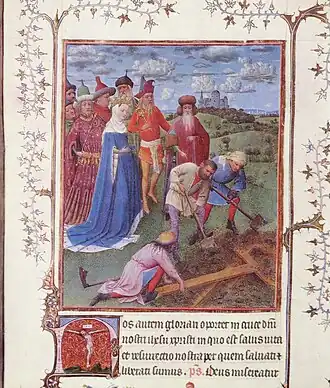 os autem gloriari oportet in cruce dñi
nostri ihesu xpristi in quo est salus uita
et resurectio nostra per quem saluati et
liberati sumus. ps. Deus misereatur